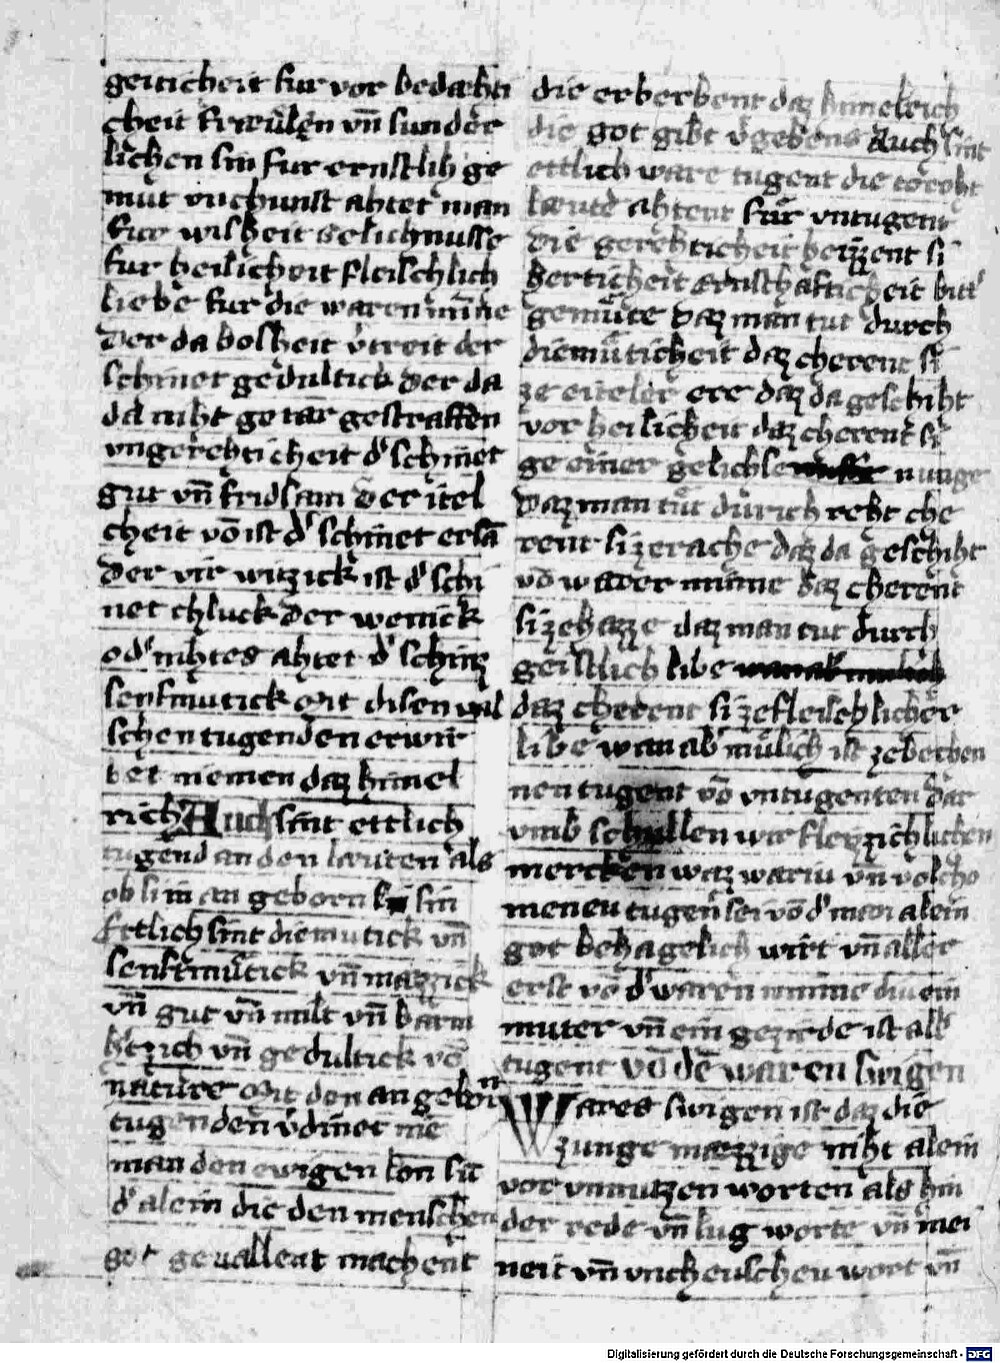 geiticheit fur vor bedæhti
cheit fræuelen vn̄ sunder
lichen sin fur ernstlih ge
mut vnchunst ahtet man
fur wisheit gelichnusse
fur heilicheit fleischlich
liebe fur die waren minne
der da bosheit v̓treit der
schinet gedultick der da
da niht getar gestraffen
vngerehticheit d̓ schinet
gut vn̄ fridsam der itel
cheit vō ist d̓ schinet ersā
der vir witzick ist d̓ schi
net chluck der wenick
od̓ nihtes ahtet d̓ schinz
senftmutick Mit disen val
schen tugenden erwir
bet niemen daz himel
rich Auch sint ettlich
tugend an den læuten als
ob si in an geborn sin
Ettlich sint diemutick vn̄
senftmutick vn̄ mazzick
vn̄ gut vn̄ milt vn̄ barm
h̓tzich vn̄ gedultick vō
nature Mit den angeborn
tugenden v̓dinet me
man den ewigen lon sū
d̓ alein die den menschen
got geuallent machent
die erberbent daz himelrich
die got gibt v̓gebens Auch sint
ettlich ware tugent die toreht
læute ahtent fur vntugent
die gerehticheit heizzent si
herticheit ernschafticheit bitt̓
gemute Daz man tut durch
diemuticheit daz cherent si
ze eiteler ere daz da geschiht
vor heilicheit daz cherent si
ge einer gelichse nunge
Daz man tut durich reht che
rent si ze rache daz da geschiht
vō warer minne daz cherent
si ze hazze daz man tut durh
geistlich libe
daz cherent si ze fleischlicher
libe wan ab̓ mulich ist ze bechen
nen tugent vō vntugenten Dar
vmb schullen wir fleizzichlichen
mercken waz wariu vn̄ volcho
meneu tugent sei vō d̓ man alein
got behagelich wirt vn̄ aller
erst vō d̓ waren minne diu ein
muter vn̄ ein gezirde ist all̓
tugent Vō dē waren swigen
Wares swigen ist daz die
zunge mæzzige niht alein
vor vnnutzen worten als hin
der rede vn̄ lug worte vn̄ mei
neit vn̄ vncheuschen wort vn̄
Digitalisierung gefördert durch die Deutsche Forschungsgemeinschaft - DFG